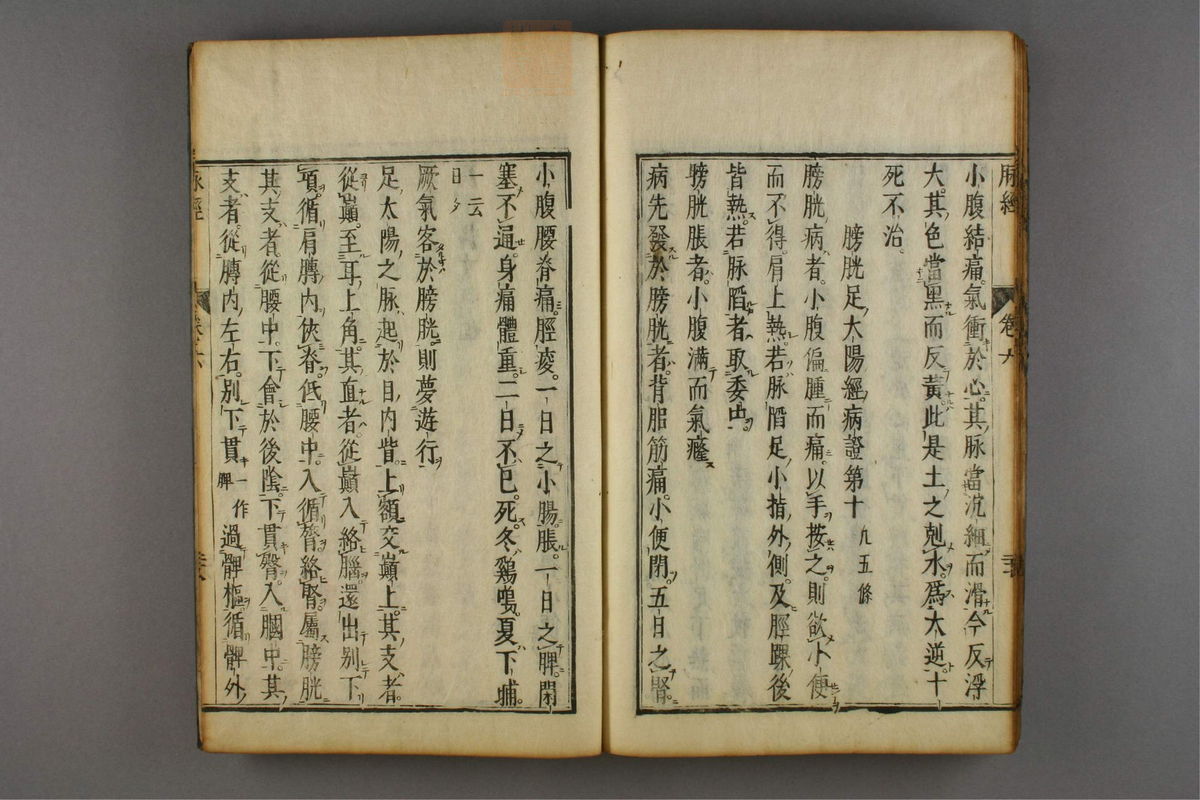 脉經 卷六
小腹結痛。氣衝於心。其脉當沉細而滑今反浮
大。其色當黑而反黃。此是土之剋水。爲大逆。十
死不治。
膀胱足太陽經病證第十 凡五條
膀胱病者。小腹偏腫而痛。以手按之。則欲小便
而不得。肩上熱。若脉陷足小指外側。及脛踝後
皆熱。若脉陷者取委中。
膀胱脹者。小腹滿而氣癃
病先發於膀胱者。背膂筋痛。小便閉。五日之腎。
小腹腰脊痛。脛痠。一日之小腸。脹。一日之脾。閉
塞不通。身痛體重。二日不已。死。冬鷄鳴。夏下晡。
一云
日夕
厥氣客於膀胱。則夢遊行
足太陽之脉。起於目内眥。上額交巔上。其支者。
從巔至耳上角。其直者。從巔入絡腦還出别下
項。循肩膊内俠脊。低腰中。入循膂絡腎。屬膀胱
其支者。從腰中。下會於後陰。下貫臀。入膕中。其
支者。從膊内。左右。别下貫 一作 髀 過髀樞循髀外
脉經 卷六